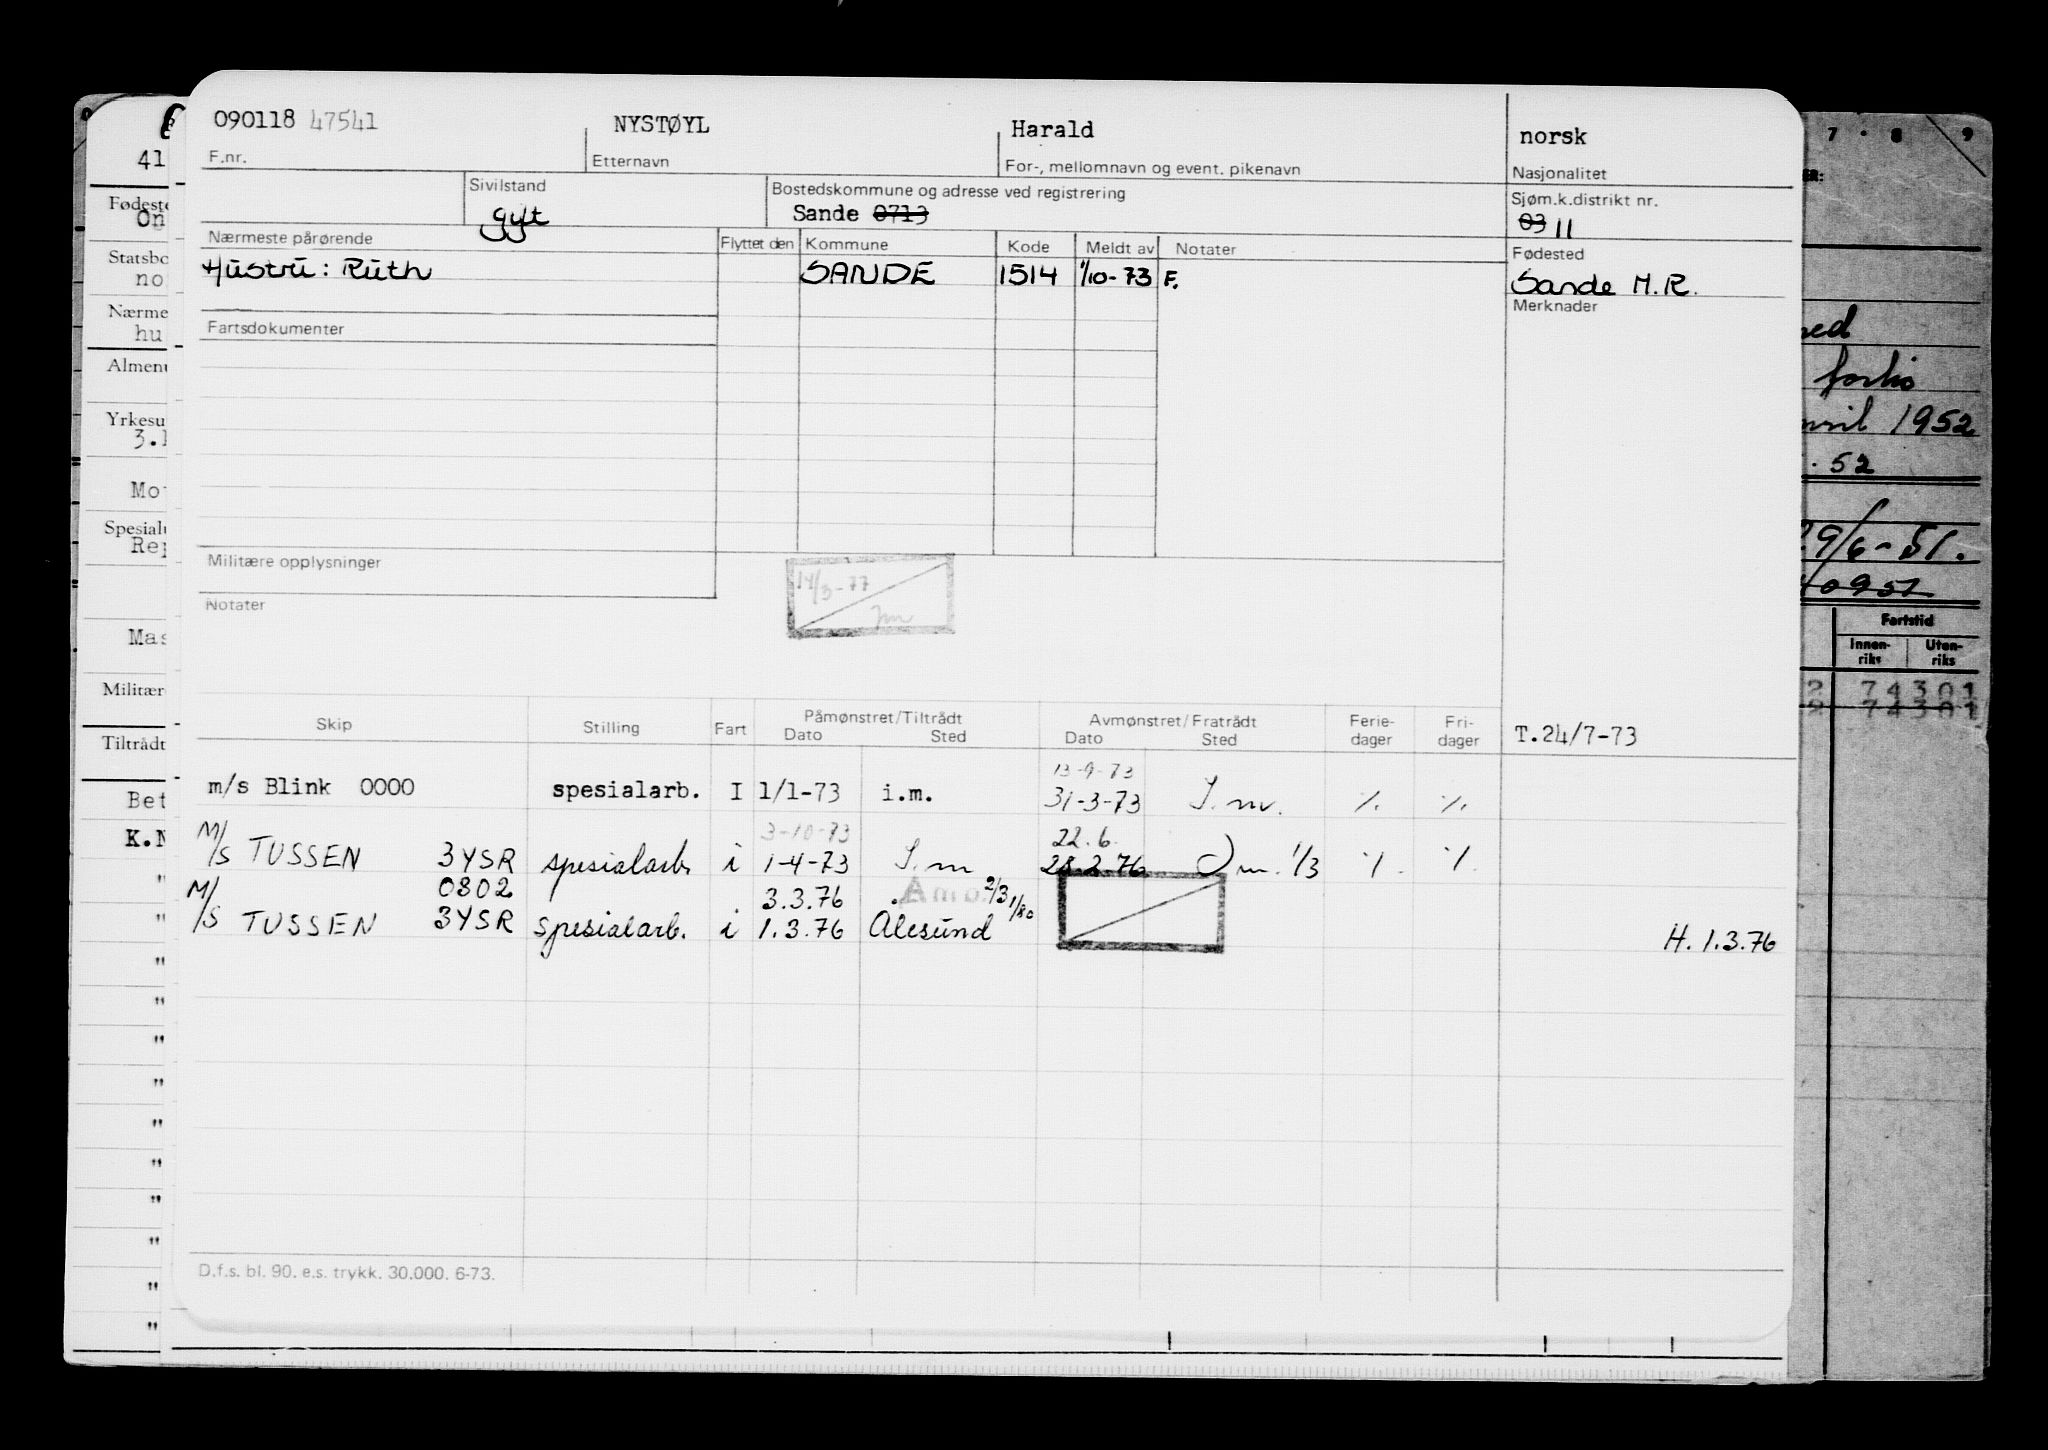 090118 47541 NYSTØYL Harald norsk
F.nr. Etternavn For-, mellomnavn og event. pikenavn Nasjonalitet
Sivilstand Bostedskommune og adresse ved registrering Sjøm.k.distrikt nr.
gift Sande 0713 03 11
Nærmeste pårørende Flyttet den Kommune Kode Meldt av Notater Fødested
Hustru: Ruth SANDE 1514 1/10-73 F. Sande M.R.
Merknader
Fartsdokumenter
Militære opplysninger
14/3-77
Notater
Skip Stilling Fart Påmønstret/Tiltrådt Avmønstret/Fratrådt Ferie- Fri-
Dato Sted Dato Sted dager dager T.24/7-73
13-9-73
m/s Blink 0000 spesialarb. I 1/1-73 i.m. 31-3-73 I. m. % %
3-10-73 22.6.
M/S TUSSEN 3YSR spesialarb i 1-4-73 I. m 28.2.76 m. 1/3 % %
0802 3.3.76 2/3 1/80
M/S TUSSEN 3YSR spesialarb. i 1.3.76 Alesund H. 1.3.76
D.f.s. bl. 90. e.s. trykk. 30.000. 6-73.
41
Fødeste
On
Statsbo
no
Nærme
hu
Almenu
Yrkesu
3.
Mo
Spesialu
Rep
Mas
Militær
Tiltrådt
Bet
K.N
"
"
"
"
"
"
"
"
"
"
"
"
7 8 9
ER:
forhø
1952
. 52
29/6-51.
40951
Fartstid
Innen- Uten-
riks riks
2 74301
2 74301